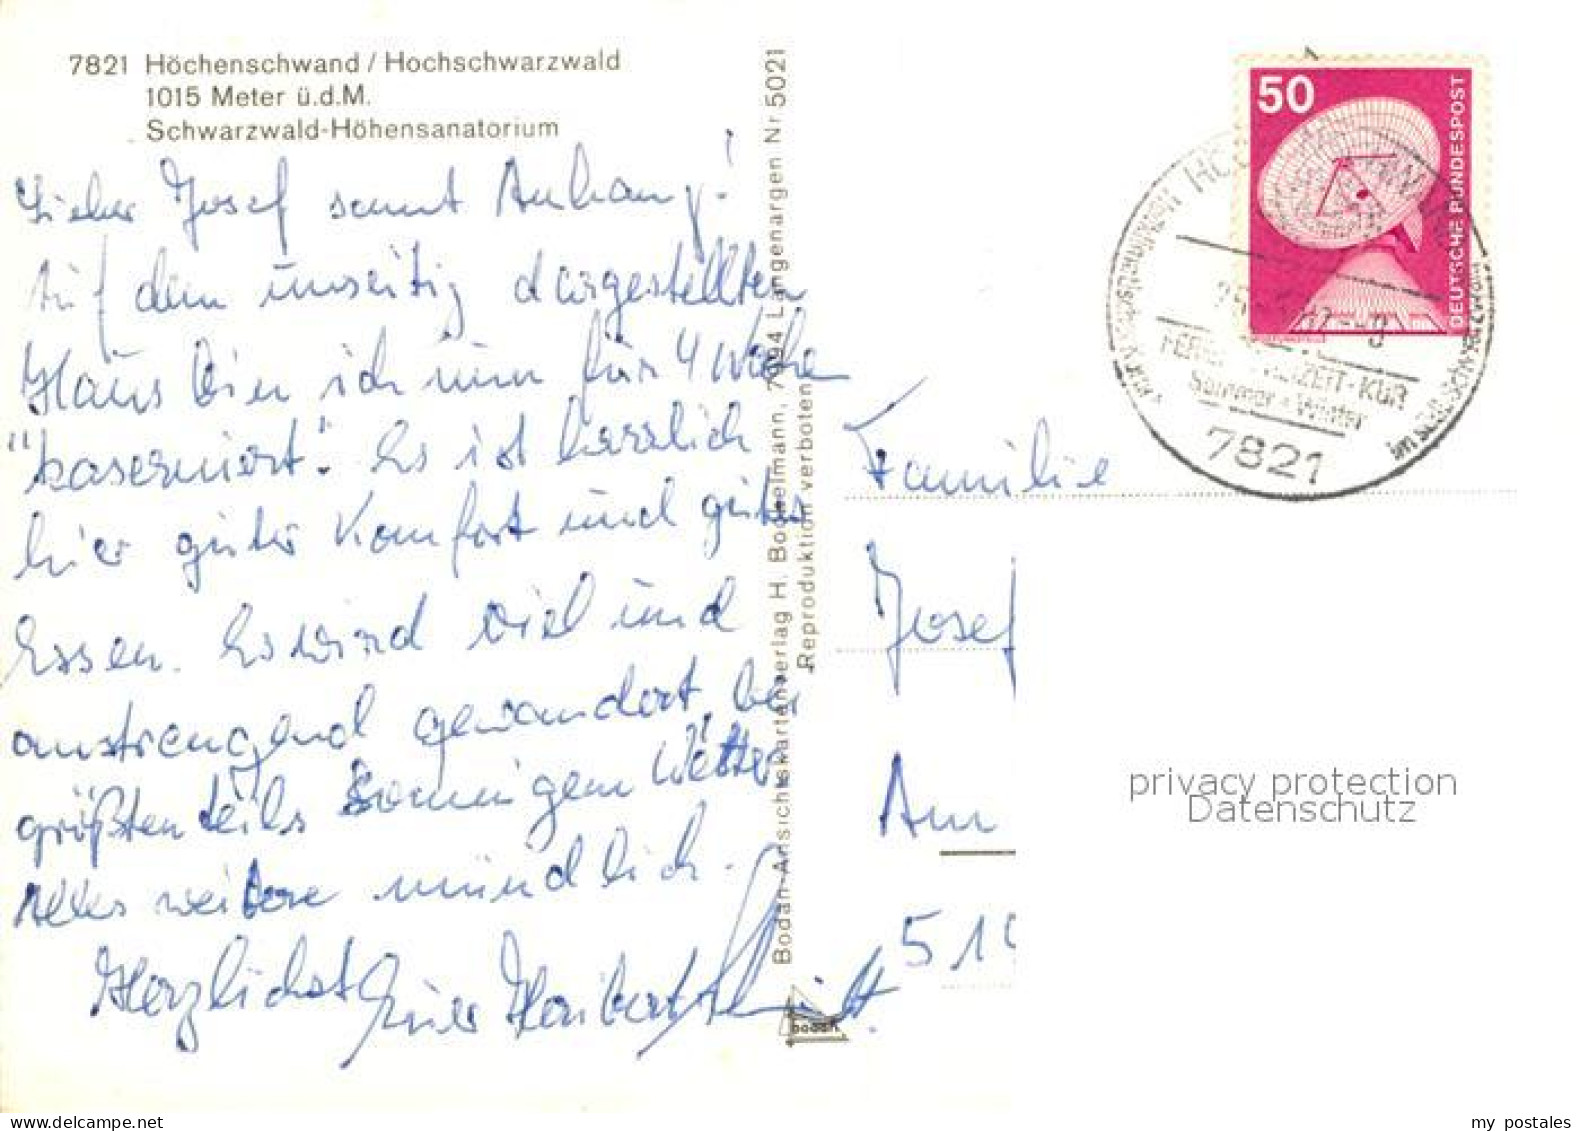 7821 Höchenschwand / Hochschwarzwald
1015 Meter ü.d.M.
Schwarzwald-Höhensanatorium
Lieber Josef samt Anhang!
Auf dem umseitig dargestellten
Haus bin ich nun für 4 Woche
"kaserniert". Es ist herrlich
hier guter Komfort und gutes
Essen. Es wird viel und
anstrengend gewandert, bei
größtenteils sonnigem Wetter.
Alles weitere mündlich.
Herzlichst Euer Herbert
Bodan-Ansichtskartenverlag H. Bockelmann, 7994 Langenargen Nr 5021
Reproduktion verboten
bodan
50
DEUTSCHE BUNDESPOST
FERIEN-FREIZEIT-KUR
Sommer + Winter
7821
Familie
Josef
Am
51
privacy protection
Datenschutz
my postales